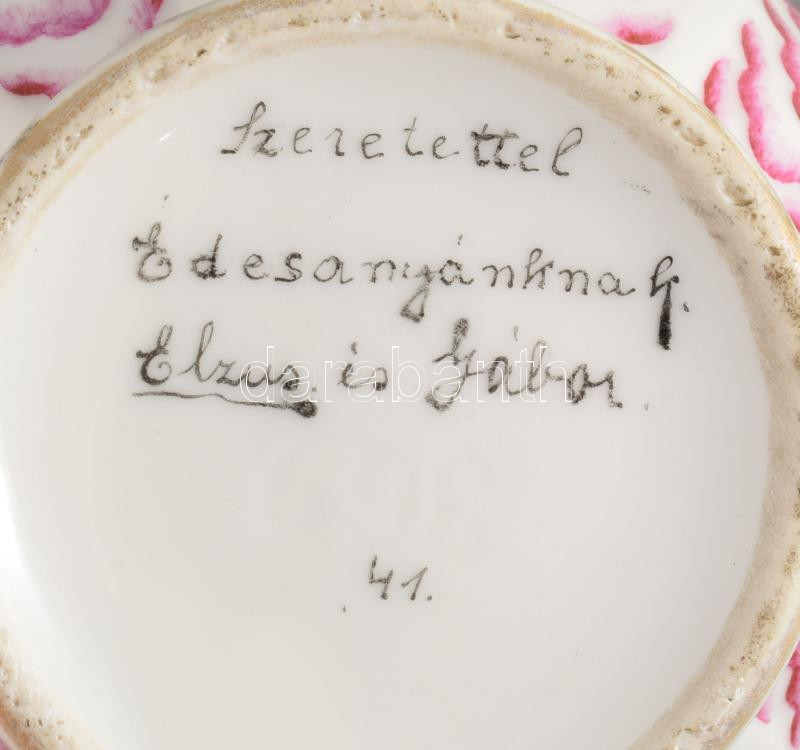 Szeretettel
Édesanyánknak.
Elzus és Gábor.
darabanth
41.